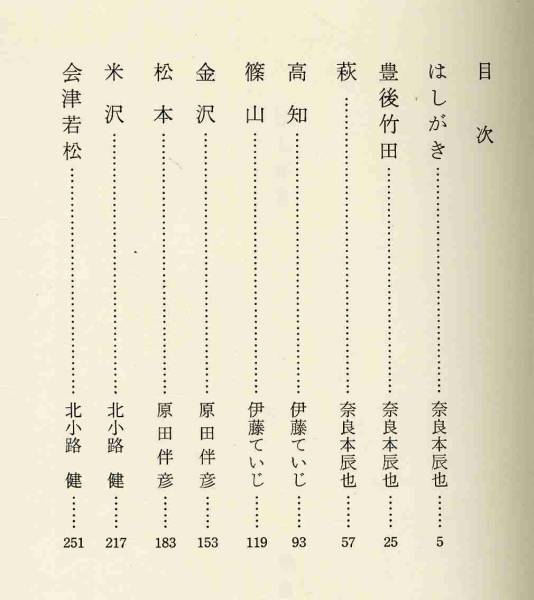 目次
はしがき……奈良本辰也……5
豊後竹田……奈良本辰也……25
萩……奈良本辰也……57
高知……伊藤ていじ……93
篠山……伊藤ていじ……119
金沢……原田伴彦……153
松本……原田伴彦……183
米沢……北小路 健……217
会津若松……北小路 健……251